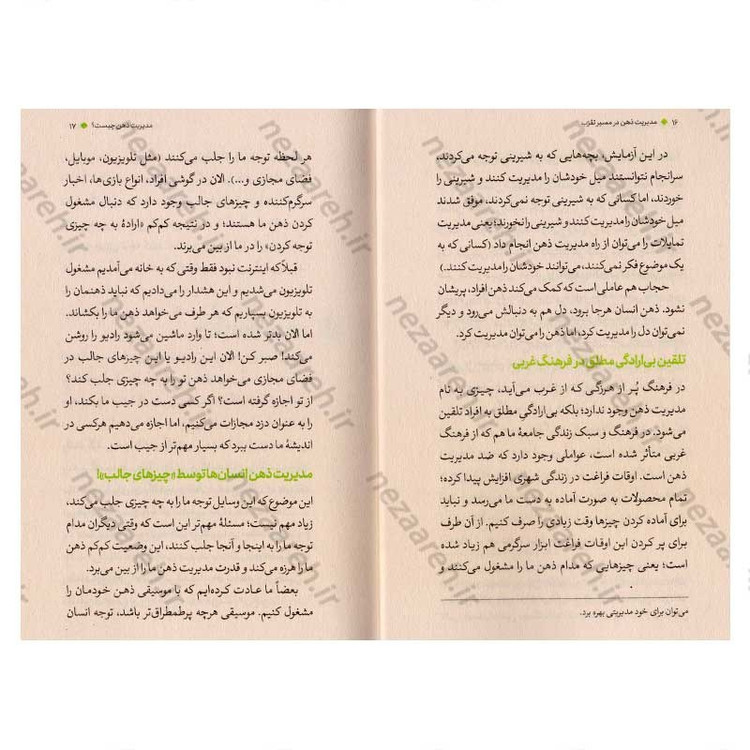 ۱۶ ● مدیریت ذهن در مسیر تقرّب
در این آزمایش، بچه‌هایی که به شیرینی توجه می‌کردند،
سرانجام نتوانستند میل خودشان را مدیریت کنند و شیرینی را
خوردند، اما کسانی که به شیرینی توجه نمی‌کردند، موفق شدند
میل خودشان را مدیریت کنند و شیرینی را نخورند؛ یعنی مدیریت
تمایلات را می‌توان از راه مدیریت ذهن انجام داد (کسانی که به
یک موضوع فکر نمی‌کنند، می‌توانند خودشان را مدیریت کنند.)
حجاب هم عاملی است که کمک می‌کند ذهن افراد، پریشان
نشود. ذهن انسان هرجا برود، دل هم به دنبالش می‌رود و دیگر
نمی‌توان دل را مدیریت کرد، اما ذهن را می‌توان مدیریت کرد.
تلقین بی‌ارادگی مطلق در فرهنگ غربی
در فرهنگ پُر از هرزگی که از غرب می‌آید، چیزی به نام
مدیریت ذهن وجود ندارد؛ بلکه بی‌ارادگی مطلق به افراد تلقین
می‌شود. در فرهنگ و سبک زندگی جامعهٔ ما هم که از فرهنگ
غربی متأثر شده است، عواملی وجود دارد که ضد مدیریت
ذهن است. اوقات فراغت در زندگی شهری افزایش پیدا کرده؛
تمام محصولات به صورت آماده به دست ما می‌رسد و نباید
برای آماده کردن چیزها وقت زیادی را صرف کنیم. از آن طرف
برای پر کردن این اوقات فراغت ابزار سرگرمی هم زیاد شده
است؛ یعنی چیزهایی که مدام ذهن ما را مشغول می‌کنند و
می‌توان برای خود مدیریتی بهره برد.
مدیریت ذهن چیست؟ ● ۱۷
هر لحظه توجه ما را جلب می‌کنند (مثل تلویزیون، موبایل،
فضای مجازی و...). الان در گوشی افراد، انواع بازی‌ها، اخبار
سرگرم‌کننده و چیزهای جالب وجود دارد که دنبال مشغول
کردن ذهن ما هستند؛ و در نتیجه کم‌کم «ارادهٔ به چه چیزی
توجه کردن» را در ما از بین می‌برند.
قبلاً که اینترنت نبود فقط وقتی که به خانه می‌آمدیم مشغول
تلویزیون می‌شدیم و این هشدار را می‌دادیم که نباید ذهنمان را
به تلویزیون بسپاریم که هر طرف می‌خواهد ذهن ما را بکشاند.
اما الان بدتر شده است؛ تا وارد ماشین می‌شود رادیو را روشن
می‌کند! صبر کن! الان این رادیو یا این چیزهای جالب در
فضای مجازی می‌خواهد ذهن تو را به چه چیزی جلب کند؟
از تو اجازه گرفته است؟ اگر کسی دست در جیب ما بکند، او
را به عنوان دزد مجازات می‌کنیم، اما اجازه می‌دهیم هرکسی در
اندیشهٔ ما دست ببرد که بسیار مهم‌تر از جیب است.
مدیریت ذهن انسان‌ها توسط «چیزهای جالب»!
این موضوع که این وسایل توجه ما را به چه چیزی جلب می‌کند،
زیاد مهم نیست؛ مسئلهٔ مهم‌تر این است که وقتی دیگران مدام
توجه ما را به اینجا و آنجا جلب کنند، این وضعیت کم‌کم ذهن
ما را هرزه می‌کند و قدرت مدیریت ذهن ما را از بین می‌برد.
بعضاً ما عادت کرده‌ایم که با موسیقی ذهن خودمان را
مشغول کنیم. موسیقی هرچه پرطمطراق‌تر باشد، توجه انسان
nezaareh.ir